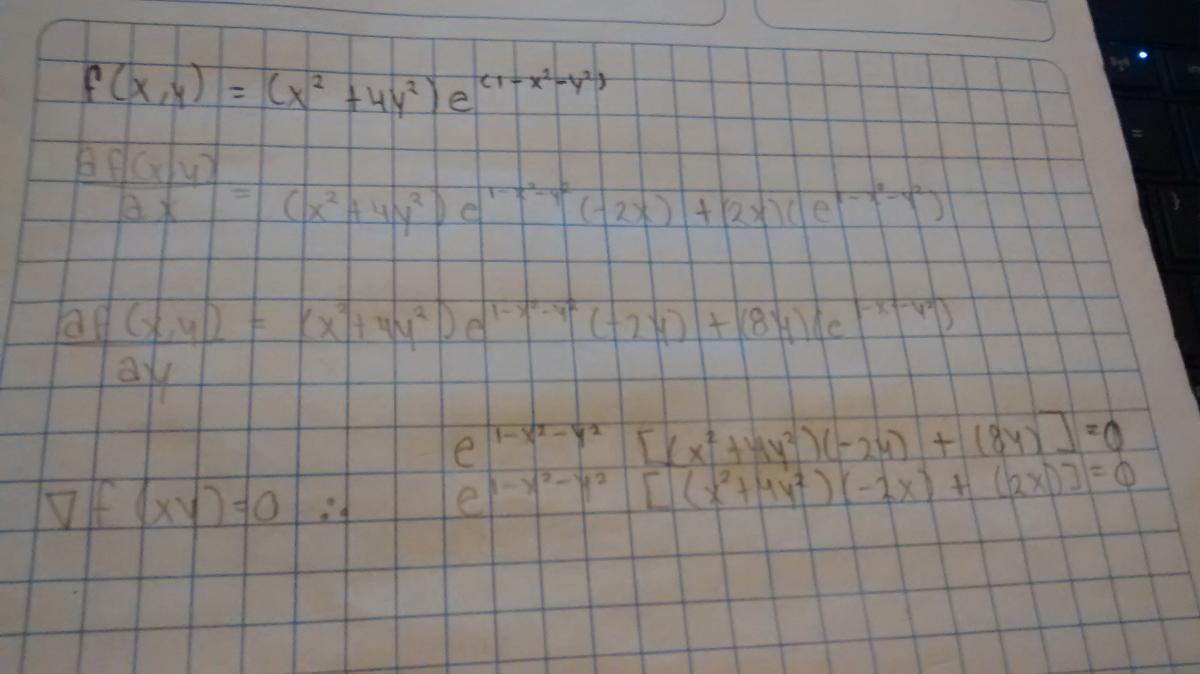 f(x,y) = (x² + 4y²) e^(1-x²-y²)
∂f(x,y)/∂x = (x²+4y²) e^1-x²-y² (-2x) + (2x)(e^1-x²-y²)
∂f(x,y)/∂y = (x²+4y²) e^1-x²-y² (-2y) + (8y)(e^1-x²-y²)
e^1-x²-y² [(x²+4y²)(-2y) + (8y)] = 0
∇f(xy)=0 ∴ e^1-x²-y² [(x²+4y²)(-2x) + (2x)] = 0